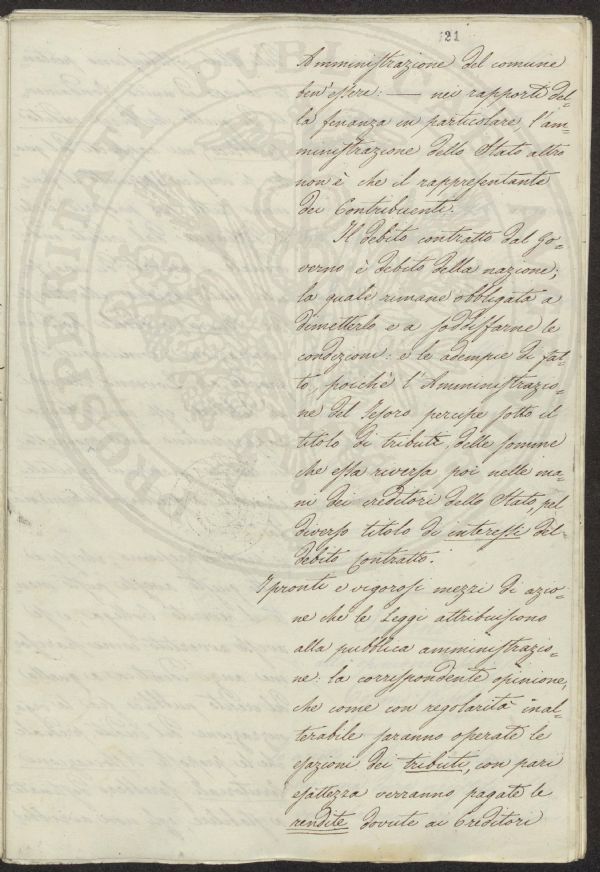 121
Amministrazione del comune
ben'essere: — nei rapporti del=
la finanza in particolare l'am=
ministrazione dello Stato altro
non è che il rappresentante
dei Contribuenti.
Il debito contratto dal Go=
verno è debito della nazione;
la quale rimane obbligata a
dimetterlo e a soddisfarne le
condizioni: e le adempie di fat=
to, poichè l'Amministrazio=
ne del Tesoro percepe sotto il
titolo di tributi, delle somme
che essa riversa poi nelle ma=
ni dei creditori dello Stato, pel
diverso titolo di interessi del
debito Contratto.
I pronti e vigorosi mezzi di azio=
ne che le Leggi attribuiscono
alla pubblica amministrazio=
ne: la corrispondente opinione,
che come con regolarità inal=
terabile saranno operate le
esazioni dei tributi, con pari
esattezza verranno pagate le
rendite dovute ai Creditori